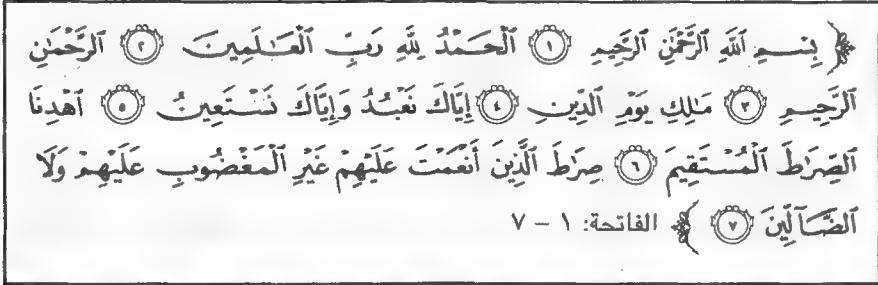 ﴿ بِسْمِ ٱللَّهِ ٱلرَّحْمَٰنِ ٱلرَّحِيمِ ١ ٱلْحَمْدُ لِلَّهِ رَبِّ ٱلْعَٰلَمِينَ ٢ ٱلرَّحْمَٰنِ
ٱلرَّحِيمِ ٣ مَٰلِكِ يَوْمِ ٱلدِّينِ ٤ إِيَّاكَ نَعْبُدُ وَإِيَّاكَ نَسْتَعِينُ ٥ ٱهْدِنَا
ٱلصِّرَٰطَ ٱلْمُسْتَقِيمَ ٦ صِرَٰطَ ٱلَّذِينَ أَنْعَمْتَ عَلَيْهِمْ غَيْرِ ٱلْمَغْضُوبِ عَلَيْهِمْ وَلَا
ٱلضَّآلِّينَ ٧ ﴾ الفاتحة: ١ – ٧